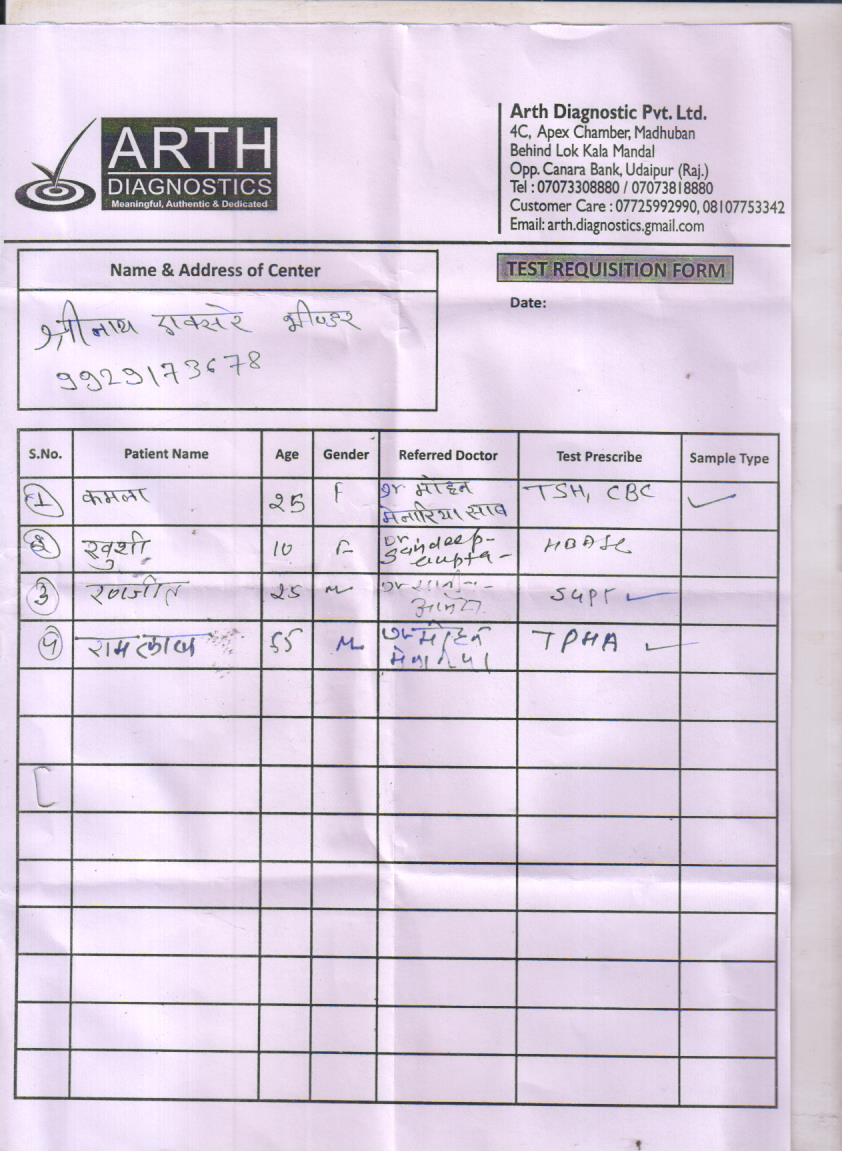 ARTH
DIAGNOSTICS
Meaningful, Authentic & Dedicated
Arth Diagnostic Pvt. Ltd.
4C, Apex Chamber, Madhuban
Behind Lok Kala Mandal
Opp. Canara Bank, Udaipur (Raj.)
Tel : 07073308880 / 07073818880
Customer Care : 07725992990, 08107753342
Email: arth.diagnostics.gmail.com
Name & Address of Center
TEST REQUISITION FORM
Date:
श्रीनाथ
9929173678
S.No. Patient Name Age Gender Referred Doctor Test Prescribe Sample Type
1 कमला 25 F Dr मोहन TSH, CBC ✓
मेनारिया साब
2 खुशी 10 F Dr Sandeep-
Gupta-
3 रणजीत 25 M Dr
4 रामलाल 55 M Dr मोहन TPHA ✓